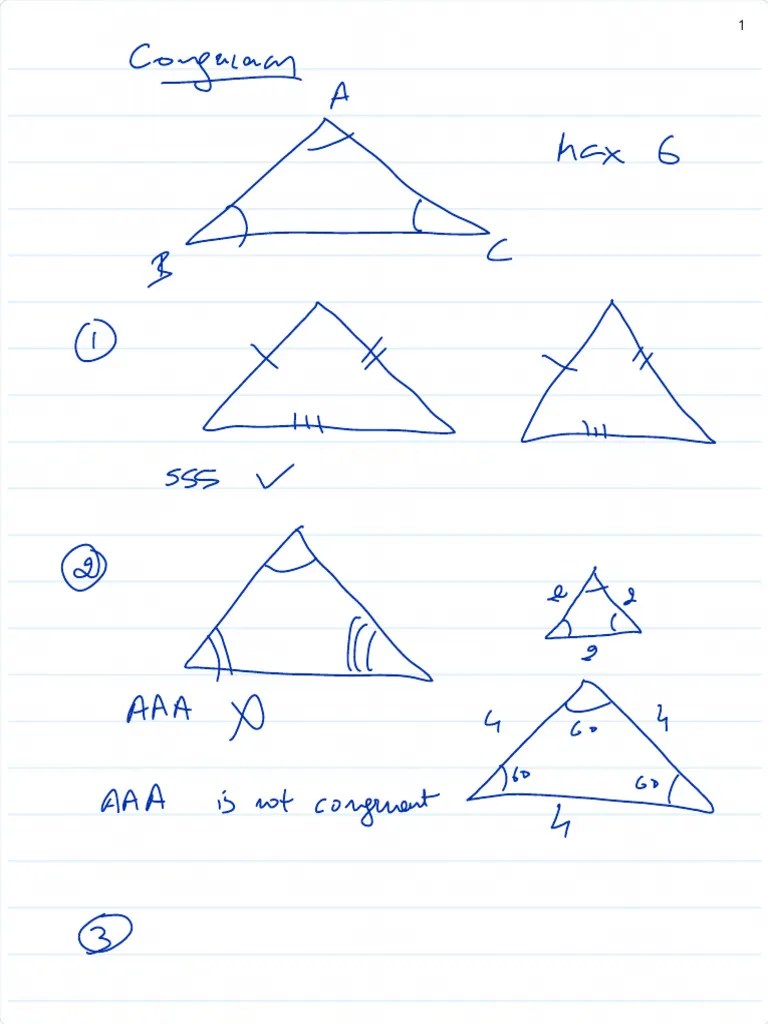 1
A
max 6
B
C
1
SSS ✓
2
2 2
2
AAA
4 60 4
60 60
AAA is not congruent
4
3